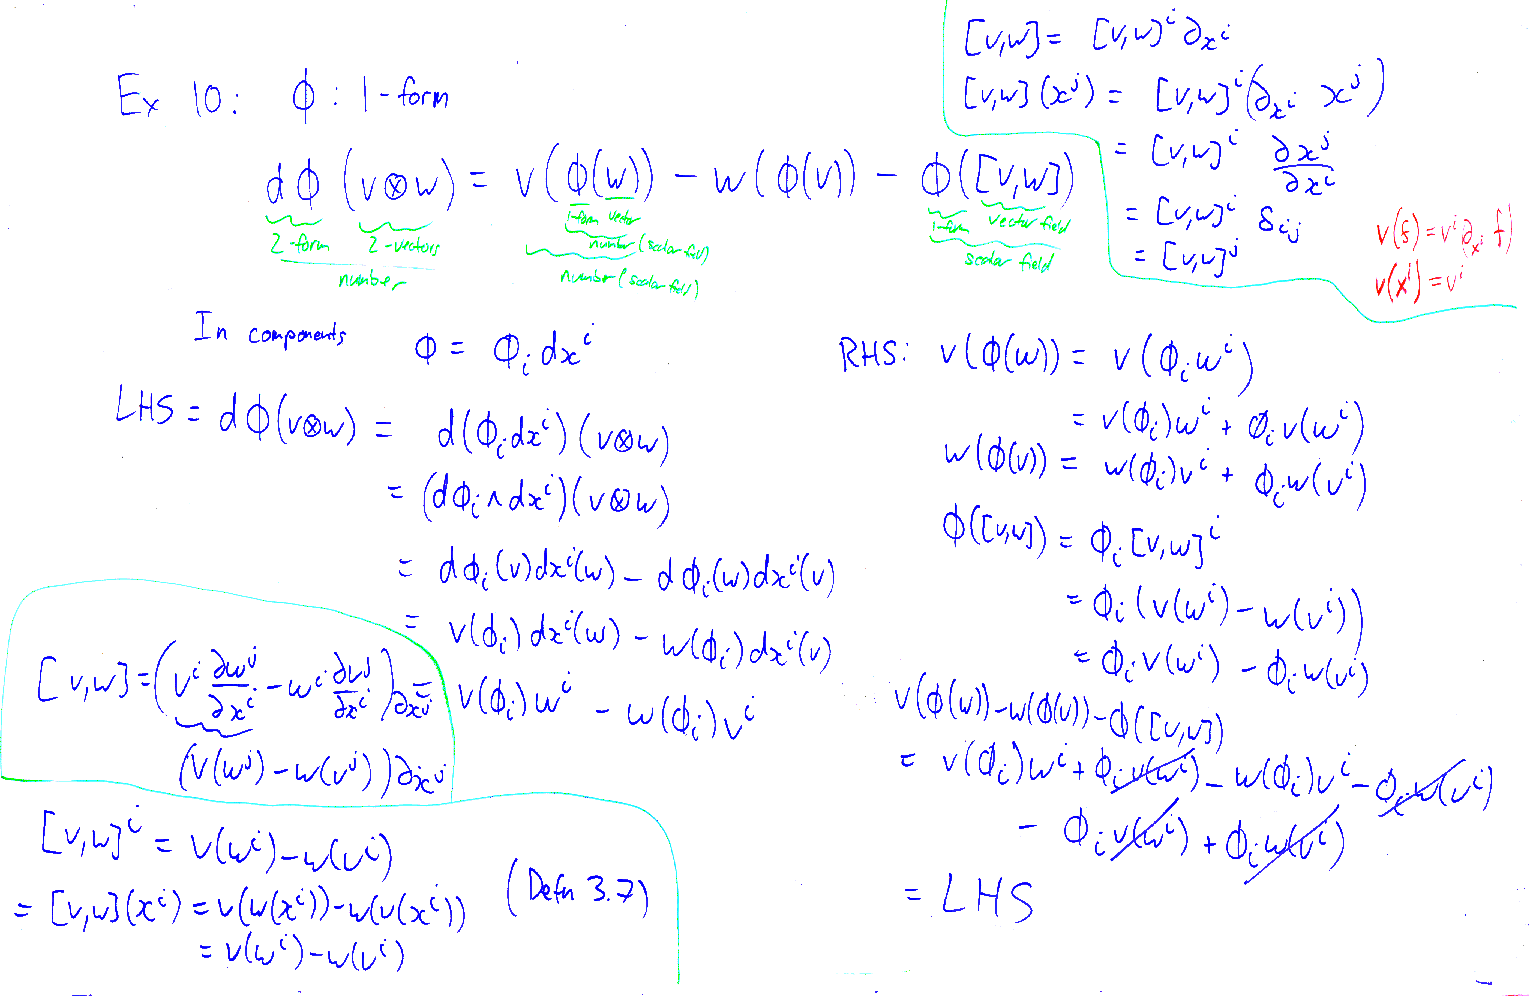 Ex 10: ϕ : 1-form
dϕ (v⊗w) = v(ϕ(w)) - w(ϕ(v)) - ϕ([v,w])
2-form 2-vectors
number
1-form vector
number (scalar field)
number (scalar field)
1-form vector field
scalar field
[v,w] = [v,w]^i ∂_{x^i}
[v,w](x^j) = [v,w]^i (∂_{x^i} x^j)
= [v,w]^i ∂x^j/∂x^i
= [v,w]^i δ_{ij}
= [v,w]^j
v(f) = v^i ∂_{x^i} f
v(x^i) = v^i
In components ϕ = ϕ_i dx^i
LHS = dϕ(v⊗w) = d(ϕ_i dx^i)(v⊗w)
= (dϕ_i ∧ dx^i)(v⊗w)
= dϕ_i(v)dx^i(w) - dϕ_i(w)dx^i(v)
= v(ϕ_i)dx^i(w) - w(ϕ_i)dx^i(v)
= v(ϕ_i)w^i - w(ϕ_i)v^i
[v,w] = (v^i ∂w^j/∂x^i - w^i ∂v^j/∂x^i) ∂_{x^j}
(v(w^j) - w(v^j)) ∂_{x^j}
[v,w]^i = v(w^i) - w(v^i)
= [v,w](x^i) = v(w(x^i)) - w(v(x^i))
= v(w^i) - w(v^i)
(Defn 3.7)
RHS: v(ϕ(w)) = v(ϕ_i w^i)
= v(ϕ_i)w^i + ϕ_i v(w^i)
w(ϕ(v)) = w(ϕ_i)v^i + ϕ_i w(v^i)
ϕ([v,w]) = ϕ_i [v,w]^i
= ϕ_i (v(w^i) - w(v^i))
= ϕ_i v(w^i) - ϕ_i w(v^i)
v(ϕ(w)) - w(ϕ(v)) - ϕ([v,w])
= v(ϕ_i)w^i + ϕ_i v(w^i) - w(ϕ_i)v^i - ϕ_i w(v^i)
- ϕ_i v(w^i) + ϕ_i w(v^i)
= LHS